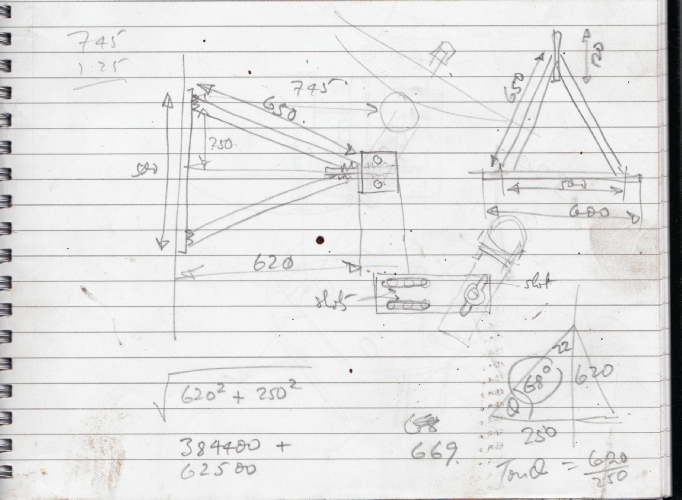 745
125
745
650
250
500
620
slots
650
120
500
600
slot
√620² + 250²
384400 +
62500
669
22
68°
620
Q
250
Tan Q = 620/250